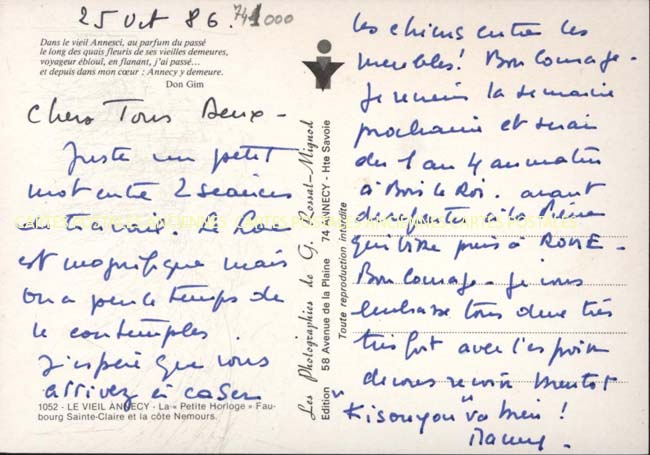 25 Oct 86. 74 000
Dans le vieil Annesci, au parfum du passé
le long des quais fleuris de ses vieilles demeures,
voyageur ébloui, en flanant, j'ai passé...
et depuis dans mon cœur : Annecy y demeure.
Don Gim
Chers Tous Deux -
Juste un petit
mot entre 2 séances
de travail. Le Lac
est magnifique mais
on a peu le temps de
le contempler.
J'espère que vous
arrivez à caser
1052 - LE VIEIL ANNECY - La « Petite Horloge » Fau-
bourg Sainte-Claire et la côte Nemours.
Les Photographies de G. Rossat-Mignod
Edition 58 Avenue de la Plaine 74 ANNECY - Hte Savoie
Toute reproduction interdite
les chiens entre les
meubles! Bon Courage -
Je reviens la semaine
prochaine et serai
du 1 au 4 au matin
à Bois le Roi. avant
qui vient près à
Bon Courage - je vous
embrasse tous deux très
très fort avec l'espoir
de vous revoir bientôt
"Kisonyou" va bien !
CARTES POSTALES ANCIENNES CARTES POSTALES ANCIENNES CARTES POSTALES